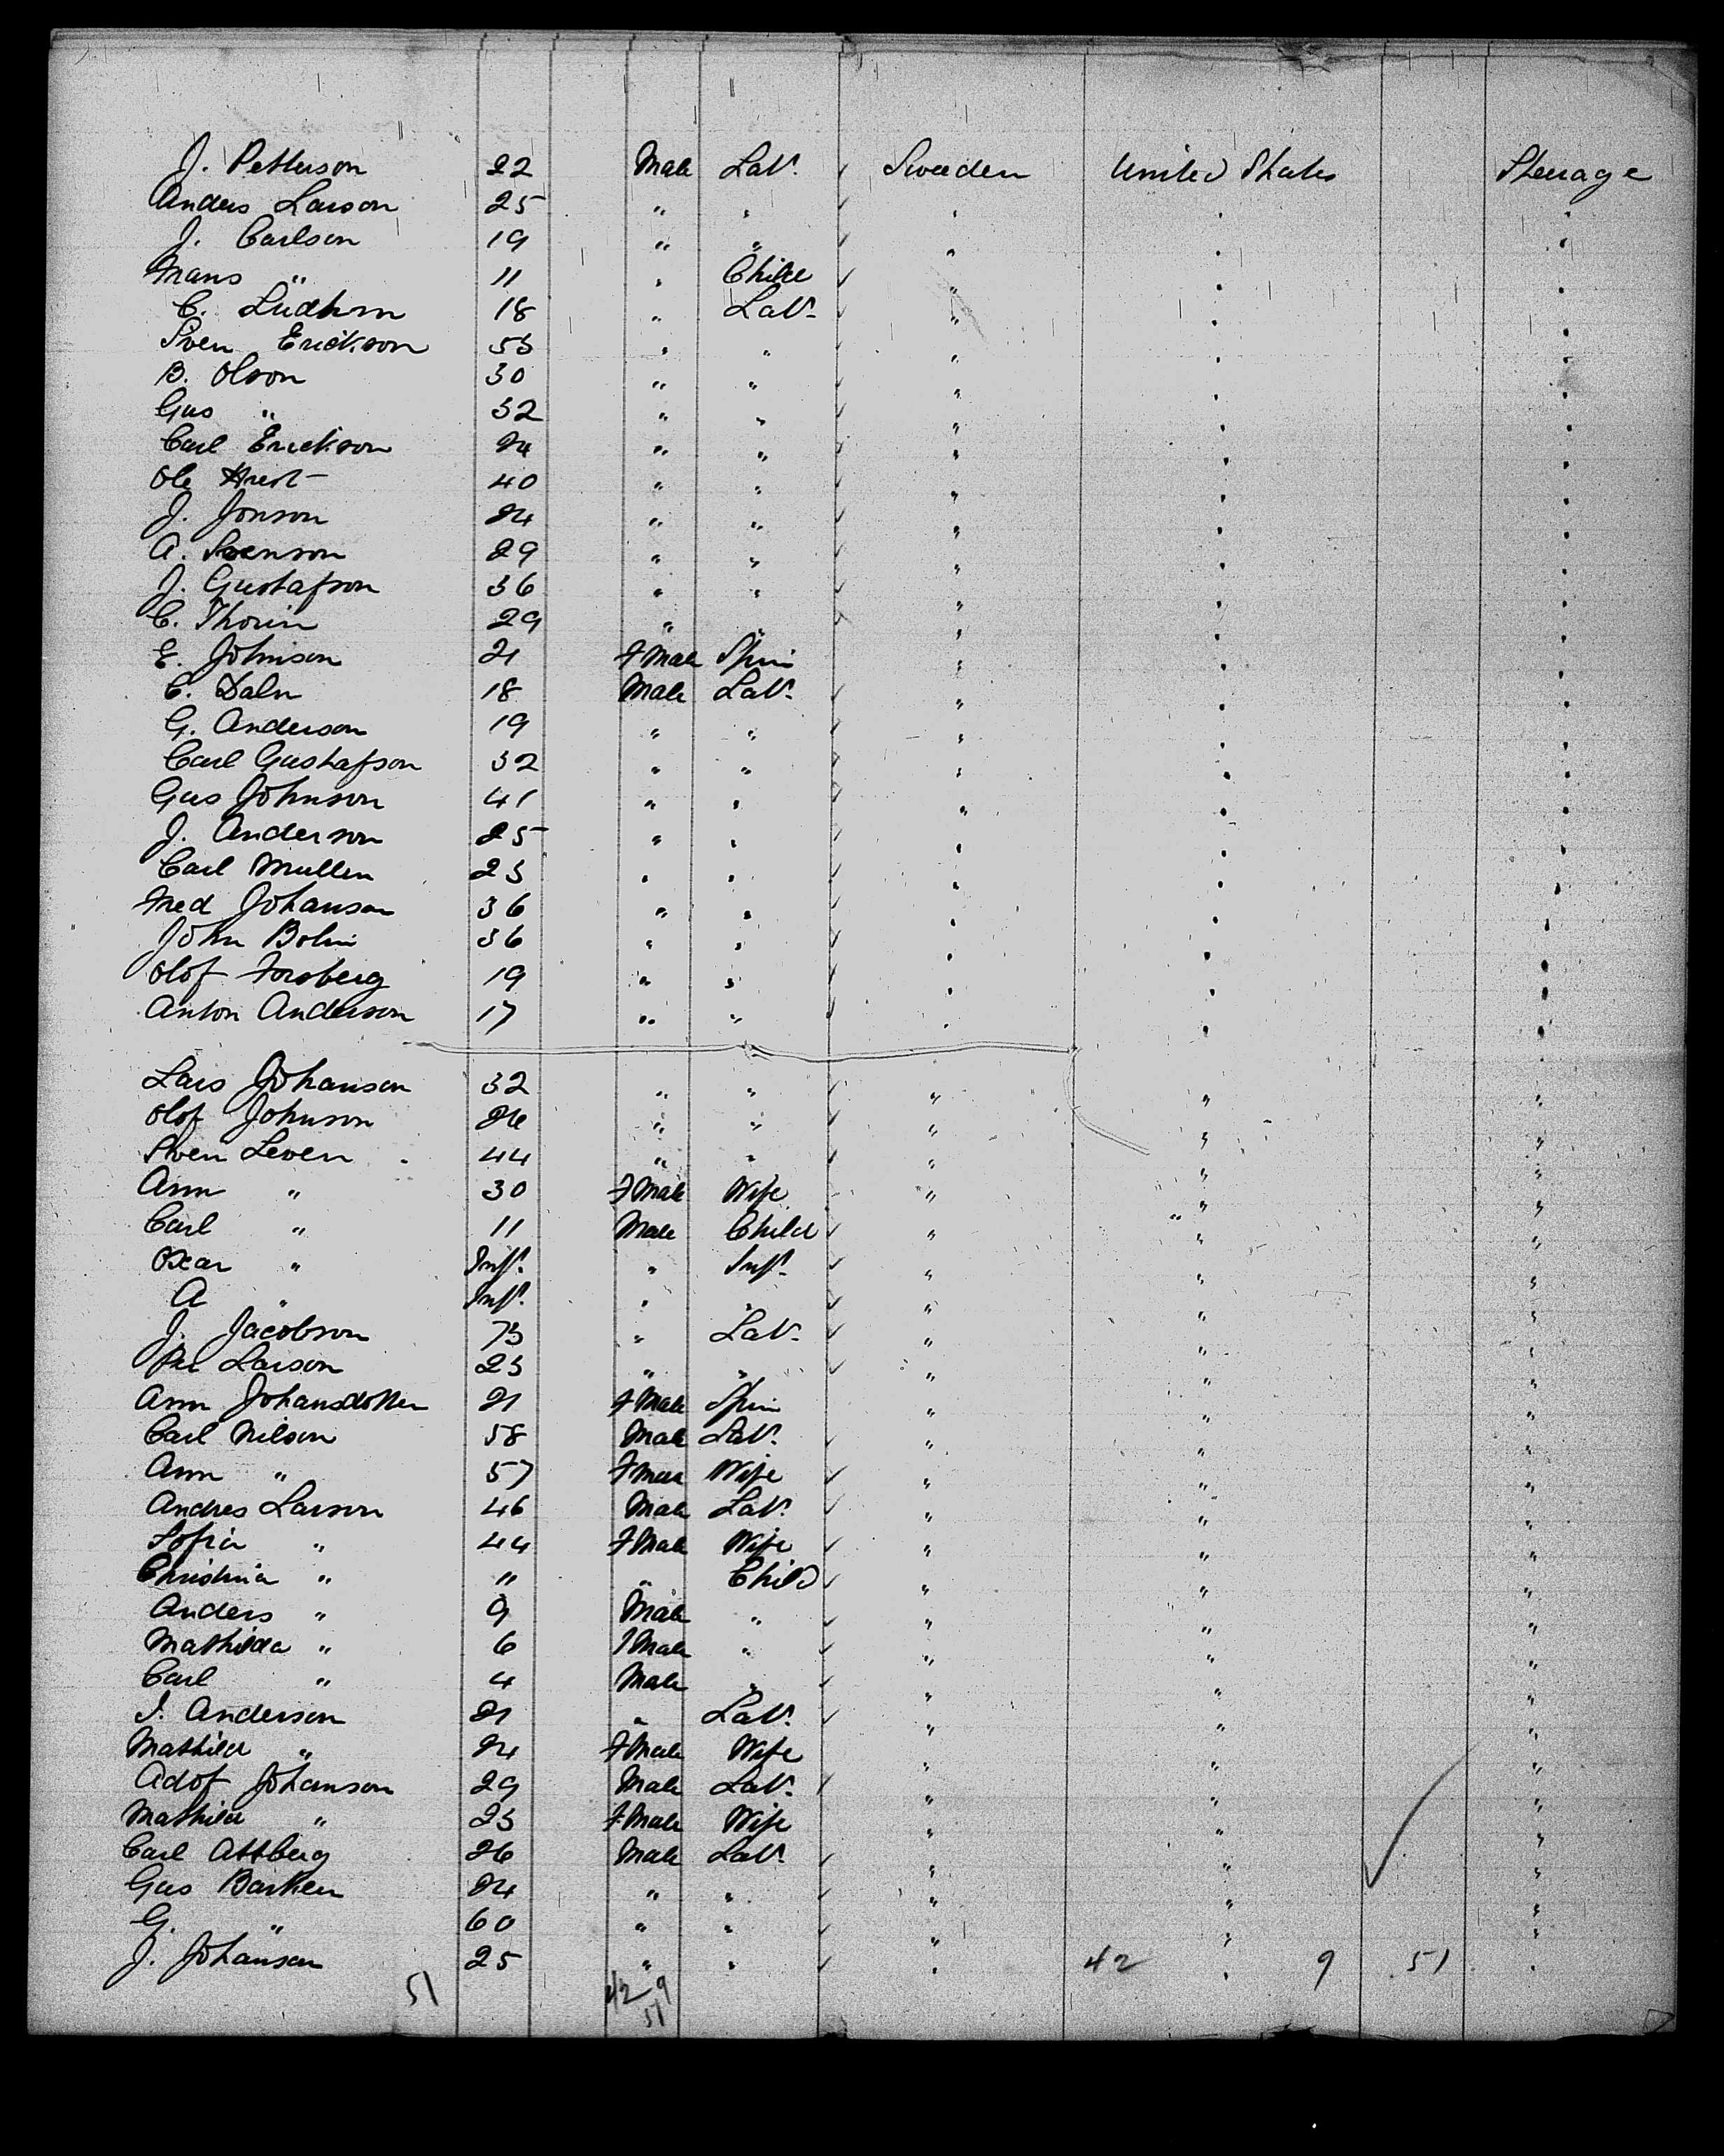 J. Petterson 22 Male Lab. Sweden United States Steerage
Anders Larson 25 " " " " "
J. Carlson 19 " " " " "
Mans " 11 " Child " " "
C. 18 " Lab. " " "
Sven Erickson 53 " " " " "
B. Olson 30 " " " " "
Gus " 32 " " " " "
Carl Erickson 24 " " " " "
Ole 40 " " " " "
J. Jonson 24 " " " " "
A. Svenson 29 " " " " "
J. Gustafson 36 " " " " "
C. Thorin 29 " " " " "
E. Johnson 21 F Male Spin " " "
C. Daln 18 Male Lab. " " "
G. Anderson 19 " " " " "
Carl Gustafson 32 " " " " "
Gus Johnson 41 " " " " "
J. Anderson 25 " " " " "
Carl Mullen 23 " " " " "
Fred Johanson 36 " " " " "
John Bolin 36 " " " " "
Olof Forsberg 19 " " " " "
Anton Anderson 17 " " " " "
Lars Johanson 32 " " " " "
Olof Johnson 26 " " " " "
Sven Leven 44 " " " " "
Ann " 30 F Male Wife " " "
Carl " 11 Male Child " " "
Oscar " Inft. " Inft. " " "
A " Inft. " " " " "
J. Jacobson 73 " Lab. " " "
Per Larson 23 " " " " "
Ann Johansdotter 21 F Male Spin " " "
Carl Nilson 58 Male Lab. " " "
Ann " 57 F Male Wife " " "
Andres Larson 46 Male Lab. " " "
Sofia " 44 F Male Wife " " "
Christina " 11 " Child " " "
Anders " 9 Male " " " "
Mathilda " 6 F Male " " " "
Carl " 4 Male " " " "
J. Anderson 21 " Lab. " " "
Mathild " 24 F Male Wife " " "
Adof Johanson 29 Male Lab. " " "
Mathild " 23 F Male Wife " " "
Carl Attberg 26 Male Lab. " " "
Gus Barken 24 " " " " "
G. " 60 " " " " "
J. Johanson 25 " " " 42 " 9 51 "
51 42 9
51